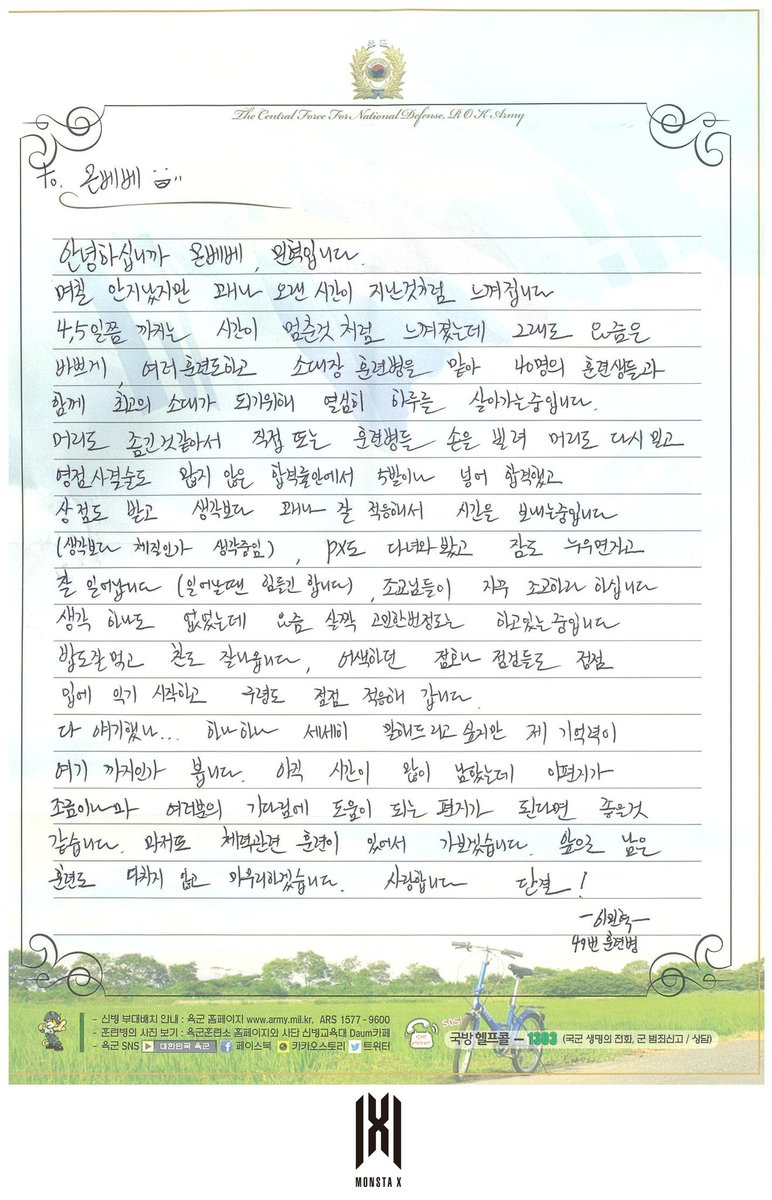 The Central Force For National Defense, R O K Army
to. 몬베베
안녕하십니까 몬베베, 민혁입니다.
며칠 안지났지만 꽤나 오랜 시간이 지난것처럼 느껴집니다
4,5일쯤 까지는 시간이 멈춘것 처럼 느껴졌는데 그래도 요즘은
바쁘게, 여러 훈련도하고 소대장 훈련병을 맡아 40명의 훈련생들과
함께 최고의 소대가 되기위해 열심히 하루를 살아가는중입니다.
머리도 좀긴것같아서 직접 또는 훈련병들 손을 빌려 머리도 다시 밀고
영점사격술도 많지 않은 합격률안에서 5발이나 넣어 합격했고
상점도 받고 생각보다 꽤나 잘 적응해서 시간을 보내는중입니다
(생각보다 체질인가 생각중임), PX도 다녀와봤고 잠도 누우면자고
잘 일어납니다 (일어날땐 힘들긴 합니다), 조교님들이 자꾸 조교하라 하십니다
생각 하나도 없었는데 요즘 살짝 고민한번정도는 하고있는중입니다
밥도잘먹고 찬도 잘나옵니다, 어색하던 점호나 점검들도 점점
입에 익기 시작하고 구령도 점점 적응해 갑니다.
다 얘기했나... 하나하나 세세히 말해드리고 싶지만 제 기억력이
여기 까지인가 봅니다. 아직 시간이 많이 남았는데 이편지가
조금이나마 여러분의 기다림에 도움이 되는 편지가 된다면 좋을것
같습니다. 마저또 체력관련 훈련이 있어서 가보겠습니다. 앞으로 남은
훈련도 다치지 않고 마무리하겠습니다. 사랑합니다 단결!
-이민혁-
49번 훈련병
- 신병 부대배치 안내 : 육군 홈페이지 www.army.mil.kr, ARS 1577-9600
- 훈련병의 사진 보기 : 육군훈련소 홈페이지와 사단 신병교육대 Daum카페
- 육군 SNS 대한민국 육군 페이스북 카카오스토리 트위터
SOS!
국방헬프콜 - 1303 (국군 생명의 전화, 군 범죄신고 / 상담)
MONSTA X